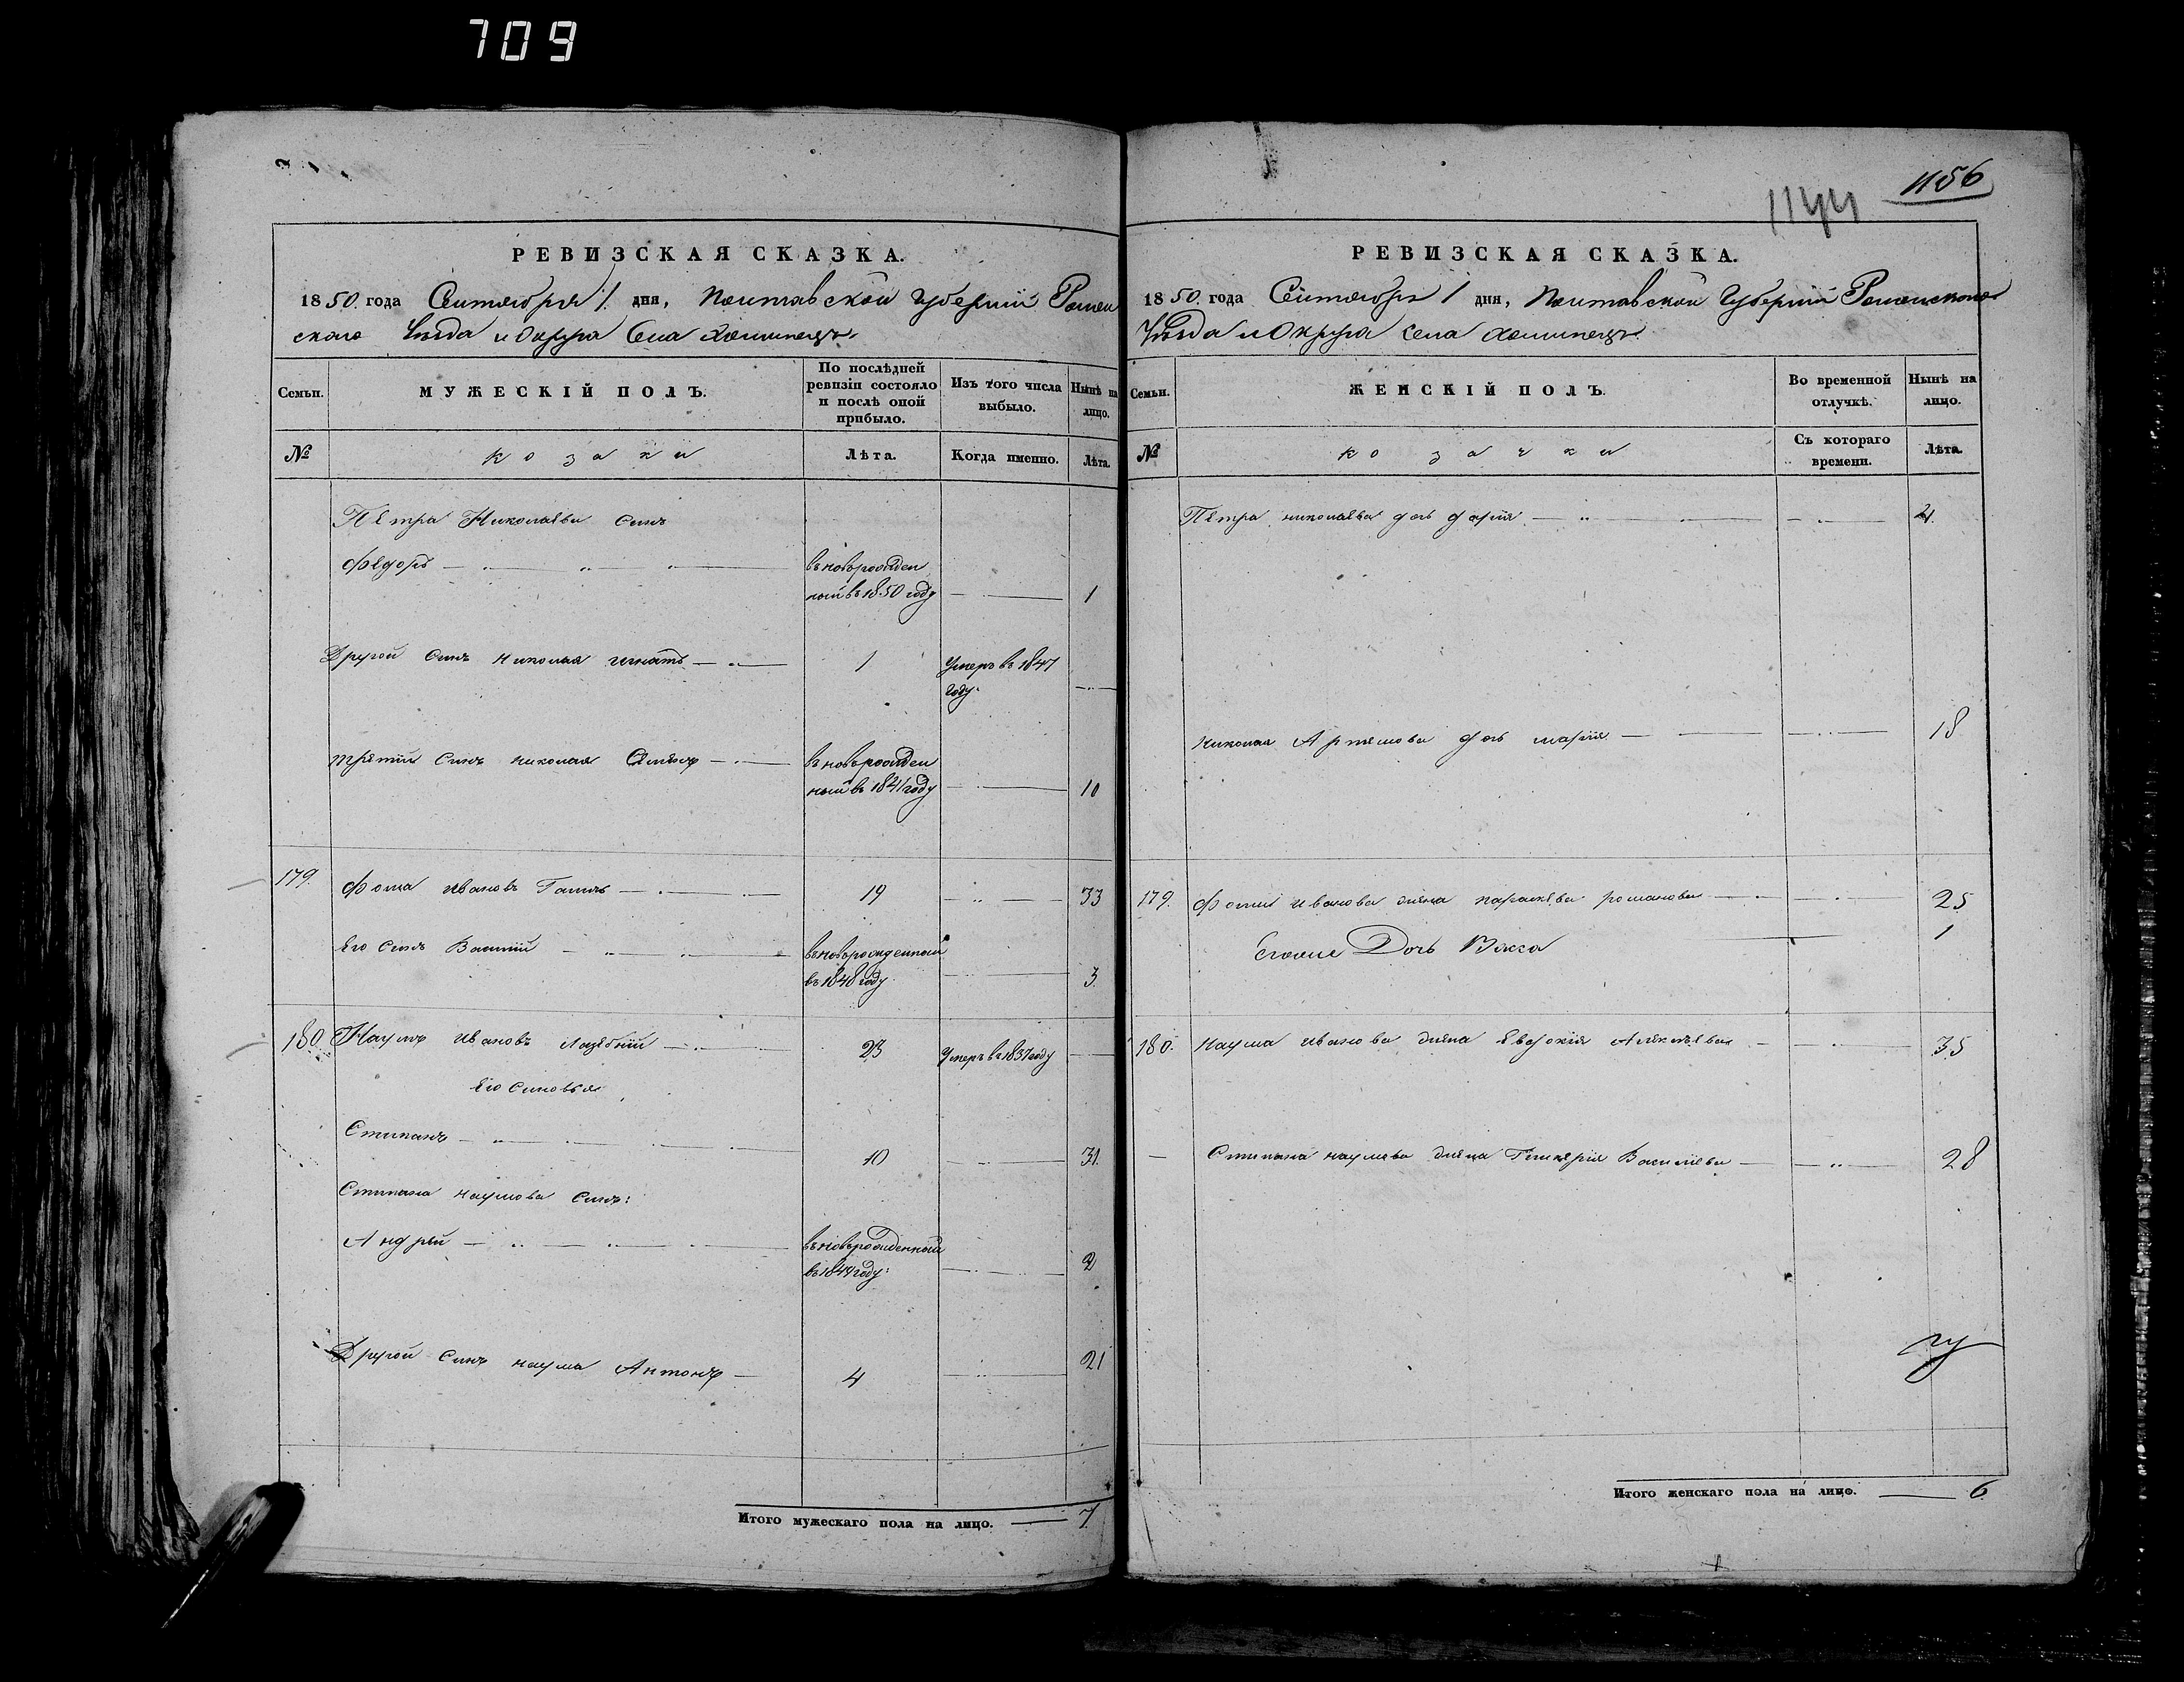 709
РЕВИЗСКАЯ СКАЗКА.
1850. года Сентября 1. дня, Полтавской Губерніи Ромен
скаго Уѣзда и Округа Села Хоминецъ.
Семьи.
МУЖЕСКІЙ ПОЛЪ.
По послѣдней ревизіи состояло и послѣ оной прибыло.
Изъ того числа выбыло.
Нынѣ на лицо.
№
козаки
Лѣта.
Когда именно.
Лѣта.
Петра Николаева синъ
Федоръ
вновьрожден
ный въ 1850 году
1
Другой синъ Николая Игнатъ
1
Умеръ въ 1847
году.
третій синъ Николая
вновьрожден
ный въ 1841 году
10
179.
Фома Ивановъ
19
33
Его синъ Василій
вновьрожденный
въ 1848 году
3.
180
Наумъ Ивановъ Лазебній
23
Умеръ въ 1837 году
Его синовья
Стипанъ
10
31.
Стипана Наумова синъ:
Андрей
вновьрожденный
въ 1849 году:
2
Другой синъ Наума Антонъ
4
21
Итого мужескаго пола на лицо.
7.
1156
1144
РЕВИЗСКАЯ СКАЗКА.
1850. года Сентября 1 дня, Полтавской Губерніи Роменскаго
Уѣзда и Округа села Хоминецъ.
Семьи.
ЖЕНСКІЙ ПОЛЪ.
Во временной отлучкѣ.
Нынѣ на лицо.
№
козачки
Съ котораго времени.
Лѣта.
Петра Николаева дочь Дарія
Николая Артемова дочь Марія
18
179.
Фоми Иванова жена Параскева Романова
25
Егоже Дочь Васса
1
180.
Наума Иванова жена Евдокія Алексѣева
35
Стипана Наумова жена Гликерія Василіева
28
Итого женскаго пола на лицо.
6.